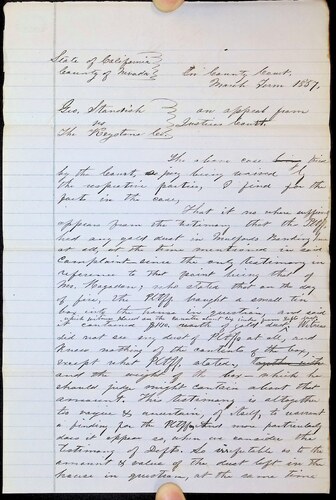 State of California
County of Nevada
In County Court
March Term 1857.
Geo. Standish
vs
The Keystone Co.
an appeal from
Justice Court
The above case being tried
by the Court, a jury being waived by
the respective parties, I find for the
facts in the case,
That it no where
appears from the testimony that the Plff
had any gold dust in
at all, at the time mentioned in said
Complaint since the only testimony in
reference to that point being that of
Mr. who states that on the day
of fire, the Plff brought a small tin
box into the house in question, and said
it contained worth of gold dust, Witness
did not see any dust of Plffs at all, and
knows nothing of the contents of the box,
except what Plff. stated,
and the weight of the box which he
should judge might contain about that
amount. The testimony is altogether
to vague & uncertain, of itself, to warrant
a finding for the Plff. And more particularly
does it appear so, when we consider the
testimony of Defts. So irrefutable as to the
amount & value of the dust left in the
house in question, at the same time